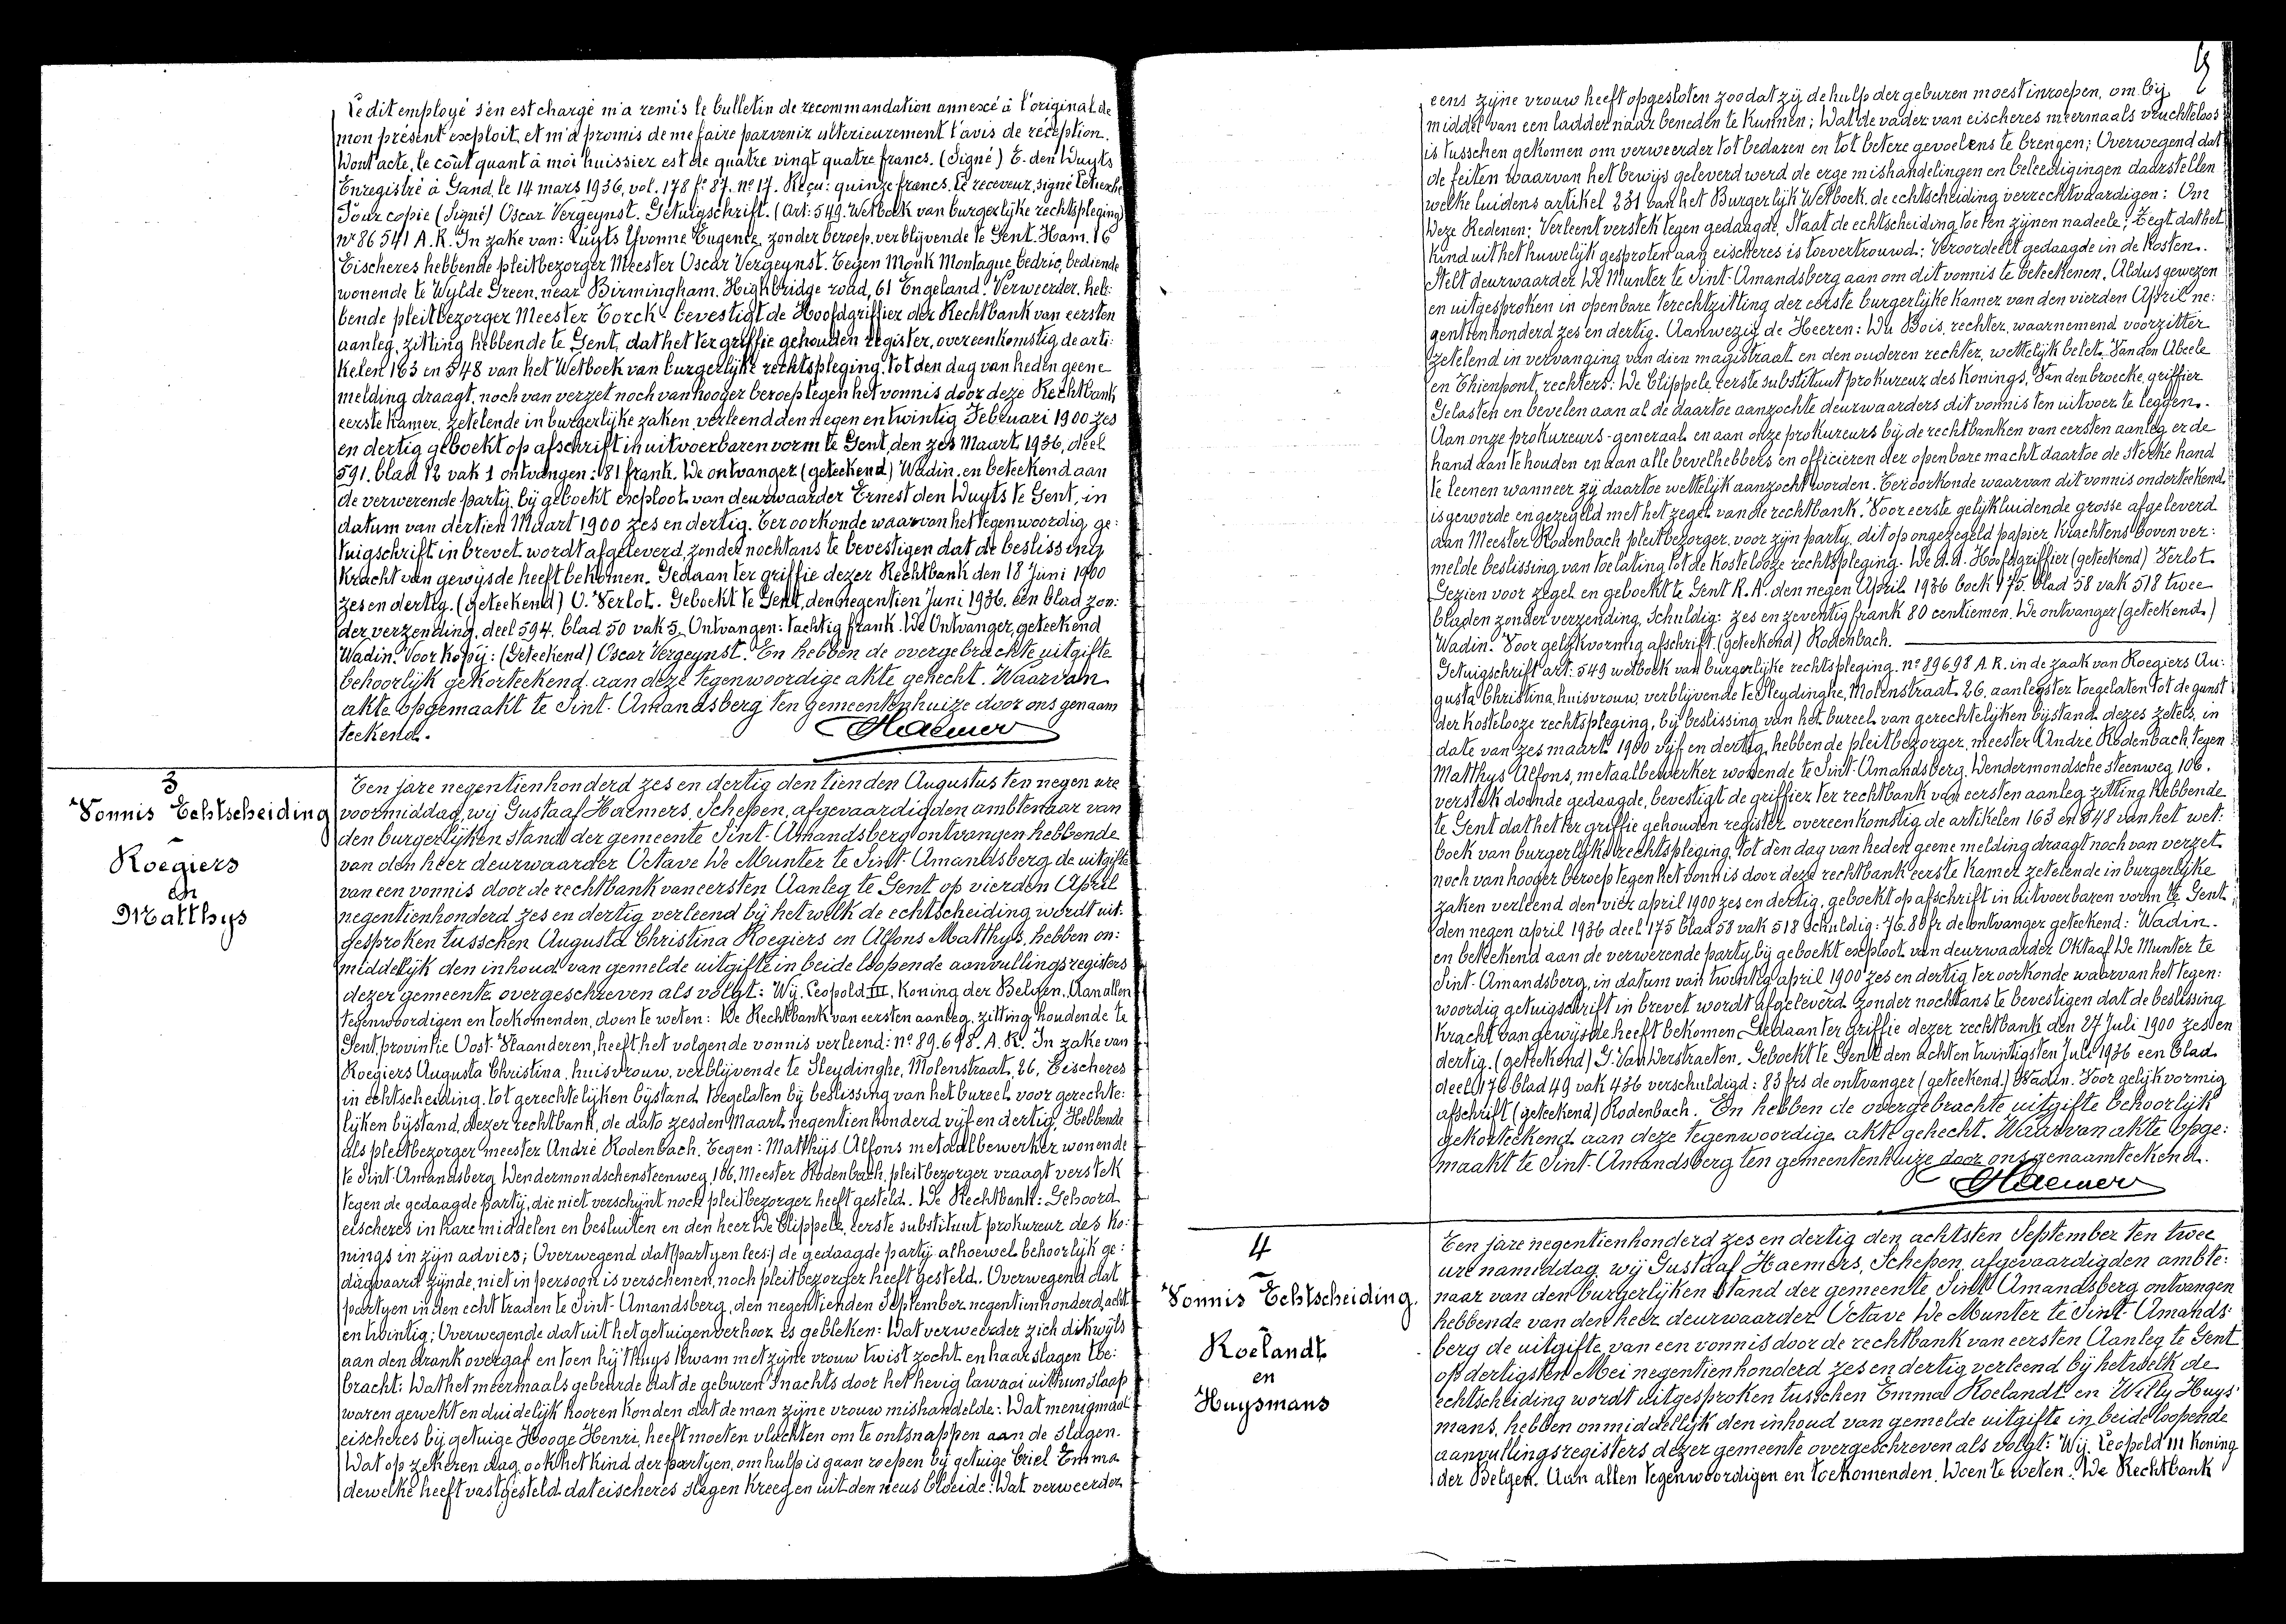 Ledit employé s'en est chargé m'a remis le bulletin de recommandation annexé à l'original de
mon présent exploit et m'a promis de me faire parvenir ulterieurement l'avis de réception.
Dont acte, le coût quant à moi huissier est de quatre vingt quatre francs. (Signé) E. den Duyts
Enregistré à Gand, le 14 mars 1936, vol. 178 f° 87. n° 17. Reçu: quinze francs. Le receveur, signé
Pour copie (Signé) Oscar Vergeynst. Getuigschrift. (Art: 549. Wetboek van burgerlijke rechtspleging)
n° 86541 A.R. In zake van: Luyts Yvonne Eugenie, zonder beroep, verblijvende te Gent. Ham. 16
Eischeres hebbende pleitbezorger Meester Oscar Vergeynst. Tegen Monk Montague, Cedric, bediende
wonende te Wylde Green, near Birmingham. Highbridge road, 61 Engeland. Verweerder. heb:
bende pleitbezorger Meester Torck - bevestigt de Hoofdgriffier der Rechtbank van eersten
aanleg, zitting hebbende te Gent, dat het ter griffie gehouden register, overeenkomstig de arti:
kelen 163 en 548 van het Wetboek van burgerlijke rechtspleging tot den dag van heden geene
melding draagt, noch van verzet noch van hooger beroep tegen het vonnis door deze Rechtbank
eerste kamer, zetelende in burgerlijke zaken, verleend den negen en twintig Februari 1900 zes
en dertig geboekt op afschrift in uitvoerbaren vorm te Gent, den zes Maart 1936, deel
591. blad 12 vak 1 ontvangen: 81 frank. De ontvanger (geteekend) Wadin. en beteekend aan
de verwerende party, bij geboekt exploot van deurwaarder Ernest den Duyts te Gent, in
datum van dertien Maart 1900 zes en dertig. Ter oorkonde waarvan het tegenwoordig ge:
tuigschrift in brevet wordt afgeleverd, zonder nochtans te bevestigen dat de beslissing
kracht van gewijsde heeft bekomen. Gedaan ter griffie dezer Rechtbank den 18 Juni 1900
zes en dertig. (geteekend) O. Verlot. Geboekt te Gent, den negentien Juni 1936. een blad zon:
der verzending, deel 594. blad 50 vak 5. Ontvangen: tachtig frank. De Ontvanger, geteekend
Wadin. Voor kopij: (Geteekend) Oscar Vergeynst. En hebben de overgebrachte uitgifte
behoorlijk gekorteekend aan deze tegenwoordige akte gehecht. Waarvan
akte opgemaakt te Sint-Amandsberg ten gemeentenhuize door ons genaam
teekend.
GHaemers
3
Vonnis Echtscheiding
Roegiers
en
Matthys
Ten jare negentienhonderd zes en dertig den tienden Augustus ten negen ure
voormiddag, wij Gustaaf Haemers, Schepen, afgevaardigden ambtenaar van
den burgerlijken stand der gemeente Sint-Amandsberg ontvangen hebbende
van den heer deurwaarder Octave De Munter te Sint-Amandsberg de uitgifte
van een vonnis door de rechtbank van eersten Aanleg te Gent op vierden April
negentienhonderd zes en dertig verleend bij het welk de echtscheiding wordt uit:
gesproken tusschen Augusta Christina Roegiers en Alfons Matthys, hebben on:
middelijk den inhoud van gemelde uitgifte in beide loopende aanvullingsregisters
dezer gemeente overgeschreven als volgt: Wij. Leopold III. Koning der Belgen. Aan allen
tegenwoordigen en toekomenden, doen te weten: De Rechtbank van eersten aanleg, zitting houdende te
Gent, provintie Oost-Vlaanderen, heeft het volgende vonnis verleend: n° 89.698. A.R. In zake van
Roegiers Augusta Christina, huisvrouw, verblijvende te Sleydinghe, Molenstraat, 26, Eischeres
in echtscheiding. tot gerechtelijken bijstand toegelaten bij beslissing van het bureel voor gerechte:
lijken bijstand, dezer rechtbank, de dato zesden Maart negentienhonderd vijf en dertig, Hebbende
als pleitbezorger meester André Rodenbach. Tegen: Matthijs Alfons metaalbewerker wonende
te Sint-Amandsberg Dendermondschensteenweg, 106, Meester Rodenbach, pleitbezorger vraagt verstek
tegen de gedaagde partij, die niet verschijnt noch pleitbezorger heeft gesteld. De Rechtbank: Gehoord
eischeres in hare middelen en besluiten en den heer De Clippele, eerste substituut prokureur des Ko:
nings in zijn advies; Overwegend dat (partyen lees:) de gedaagde partij alhoewel behoorlijk ge:
dagvaard zijnde, niet in persoon is verschenen, noch pleitbezorger heeft gesteld. Overwegend dat
partyen in den echt traden te Sint-Amandsberg, den negentienden September negentienhonderd acht
en twintig; Overwegende dat uit het getuigenverhoor is gebleken: Dat verweerder zich dikwijls
aan den drank overgaf en toen hij thuys kwam met zijne vrouw twist zocht en haar slagen toe:
bracht: Dat het meermaals gebeurde dat de geburen 's nachts door het hevig lawaai uit hun slaap
waren gewekt en duidelijk hooren konden dat de man zijne vrouw mishandelde: Dat menigmaal
eischeres bij getuige Hooge Henri, heeft moeten vluchten om te ontsnappen aan de slagen.
Dat op zekeren dag ook het kind der partyen, om hulp is gaan roepen bij getuige Criel Emma
dewelke heeft vastgesteld dat eischeres slagen kreeg en uit den neus bloeide: Dat verweerder
eens zijne vrouw heeft opgesloten zoodat zij de hulp der geburen moest inroepen, om bij
middel van een ladder naar beneden te kunnen; Dat de vader van eischeres meermaals vruchteloos
is tusschen gekomen om verweerder tot bedaren en tot betere gevoelens te brengen; Overwegend dat
de feiten waarvan het bewijs geleverd werd de erge mishandelingen en beleedigingen daarstellen
welke luidens artikel 231 van het Burgerlijk Wetboek, de echtscheiding verrechtvaardigen: Om
Deze Redenen; Verleent verstek tegen gedaagde, Staat de echtscheiding toe ten zijnen nadeele; Zegt dat het
kind uit het huwelijk gesproten aan eischeres is toevertrouwd.: Veroordeelt gedaagde in de kosten.
Stelt deurwaarder De Munter te Sint-Amandsberg aan om dit vonnis te beteekenen. Aldus gewezen
en uitgesproken in openbare terechtzitting der eerste burgerlijke kamer van den vierden April ne:
gentienhonderd zes en dertig. Aanwezig de Heeren: Du Bois, rechter, waarnemend voorzitter
zetelend in vervanging van dien magistraat en den ouderen rechter, wettelijk belet. Van den Abeele
en Thienpont, rechters: De Clippele, eerste substituut prokureur des Konings, Van den broecke, griffier
Gelasten en bevelen aan al de daartoe aanzochte deurwaarders dit vonnis ten uitvoer te leggen.
Aan onze prokureurs-generaal en aan onze prokureurs bij de rechtbanken van eersten aanleg er de
hand aan te houden en aan alle bevelhebbers en officieren der openbare macht daartoe de sterke hand
te leenen wanneer zij daartoe wettelijk aanzocht worden. Ter oorkonde waarvan dit vonnis onderteekend
is geworde en gezegeld met het zegel van de rechtbank. Voor eerste gelijkluidende grosse afgeleverd
aan Meester Rodenbach pleitbezorger, voor zijn party, dit op ongezegeld papier, krachtens boven ver:
melde beslissing van toelating tot de kostelooze rechtspleging. De d.d. Hoofdgriffier (geteekend) Verlot
Gezien voor zegel en geboekt te Gent R.A. den negen April 1936 boek 175. blad 58 vak 518 twee
bladen zonder verzending, Schuldig: zes en zeventig frank 80 centiemen. De ontvanger (geteekend.)
Wadin. Voor gelijkvormig afschrift. (geteekend) Rodenbach.
Getuigschrift art. 549 wetboek van burgerlijke rechtspleging. n° 89698 A.R. in de zaak van Roegiers Au:
gusta Christina, huisvrouw, verblijvende te Sleydinghe, Molenstraat 26, aanlegster toegelaten tot de gunst
der kostelooze rechtspleging, bij beslissing van het bureel van gerechtelijken bijstand dezes zetels, in
date van zes maart 1900 vijf en dertig, hebbende pleitbezorger, meester André Rodenbach, tegen
Matthys Alfons, metaalbewerker wonende te Sint-Amandsberg Dendermondsche steenweg 106.
verstek doende gedaagde, bevestigt de griffier ter rechtbank van eersten aanleg zitting hebbende
te Gent dat het ter griffie gehouden register overeenkomstig de artikelen 163 en 548 van het wet:
boek van burgerlijke rechtspleging, tot den dag van heden geene melding draagt noch van verzet
noch van hooger beroep tegen het vonnis door deze rechtbank eerste kamer zetelende in burgerlijke
zaken verleend den vier april 1900 zes en dertig, geboekt op afschrift in uitvoerbaren vorm te Gent
den negen april 1936 deel 175 blad 58 vak 518 schuldig: 76.80 fr de ontvanger geteekend: Wadin.
en beteekend aan de verwerende party bij geboekt exploot van deurwaarder Oktaaf De Munter te
Sint-Amandsberg, in datum van twintig april 1900 zes en dertig ter oorkonde waarvan het tegen:
woordig getuigschrift in brevet wordt afgeleverd zonder nochtans te bevestigen dat de beslissing
kracht van gewijsde heeft bekomen. Gedaan ter griffie dezer rechtbank den 27 Juli 1900 zes en
dertig. (geteekend) G. Van Derstraeten. Geboekt te Gent den achten twintigsten Juli 1936 een blad
deel 176 blad 49 vak 436 verschuldigd: 83 frs de ontvanger (geteekend.) Wadin. Voor gelijkvormig
afschrift (geteekend) Rodenbach. En hebben de overgebrachte uitgifte behoorlijk
gekorteekend aan deze tegenwoordige akte gehecht. Waarvan akte opge:
maakt te Sint-Amandsberg ten gemeentenhuize door ons genaamteekend.
GHaemers
4
Vonnis Echtscheiding
Roelandt
en
Huysmans
Ten jare negentienhonderd zes en dertig den achtsten September ten twee
ure namiddag, wij Gustaaf Haemers, Schepen, afgevaardigden ambte:
naar van den burgerlijken stand der gemeente Sint-Amandsberg ontvangen
hebbende van den heer deurwaarder Octave De Munter te Sint-Amands:
berg de uitgifte van een vonnis door de rechtbank van eersten Aanleg te Gent
op dertigsten Mei negentienhonderd zes en dertig verleend bij hetwelk de
echtscheiding wordt uitgesproken tusschen Emma Roelandt en Willy Huys:
mans, hebben onmiddellijk den inhoud van gemelde uitgifte in beide loopende
aanvullingsregisters dezer gemeente overgeschreven als volgt: Wij. Leopold III Koning
der Belgen. Aan allen tegenwoordigen en toekomenden, Doen te weten: De Rechtbank